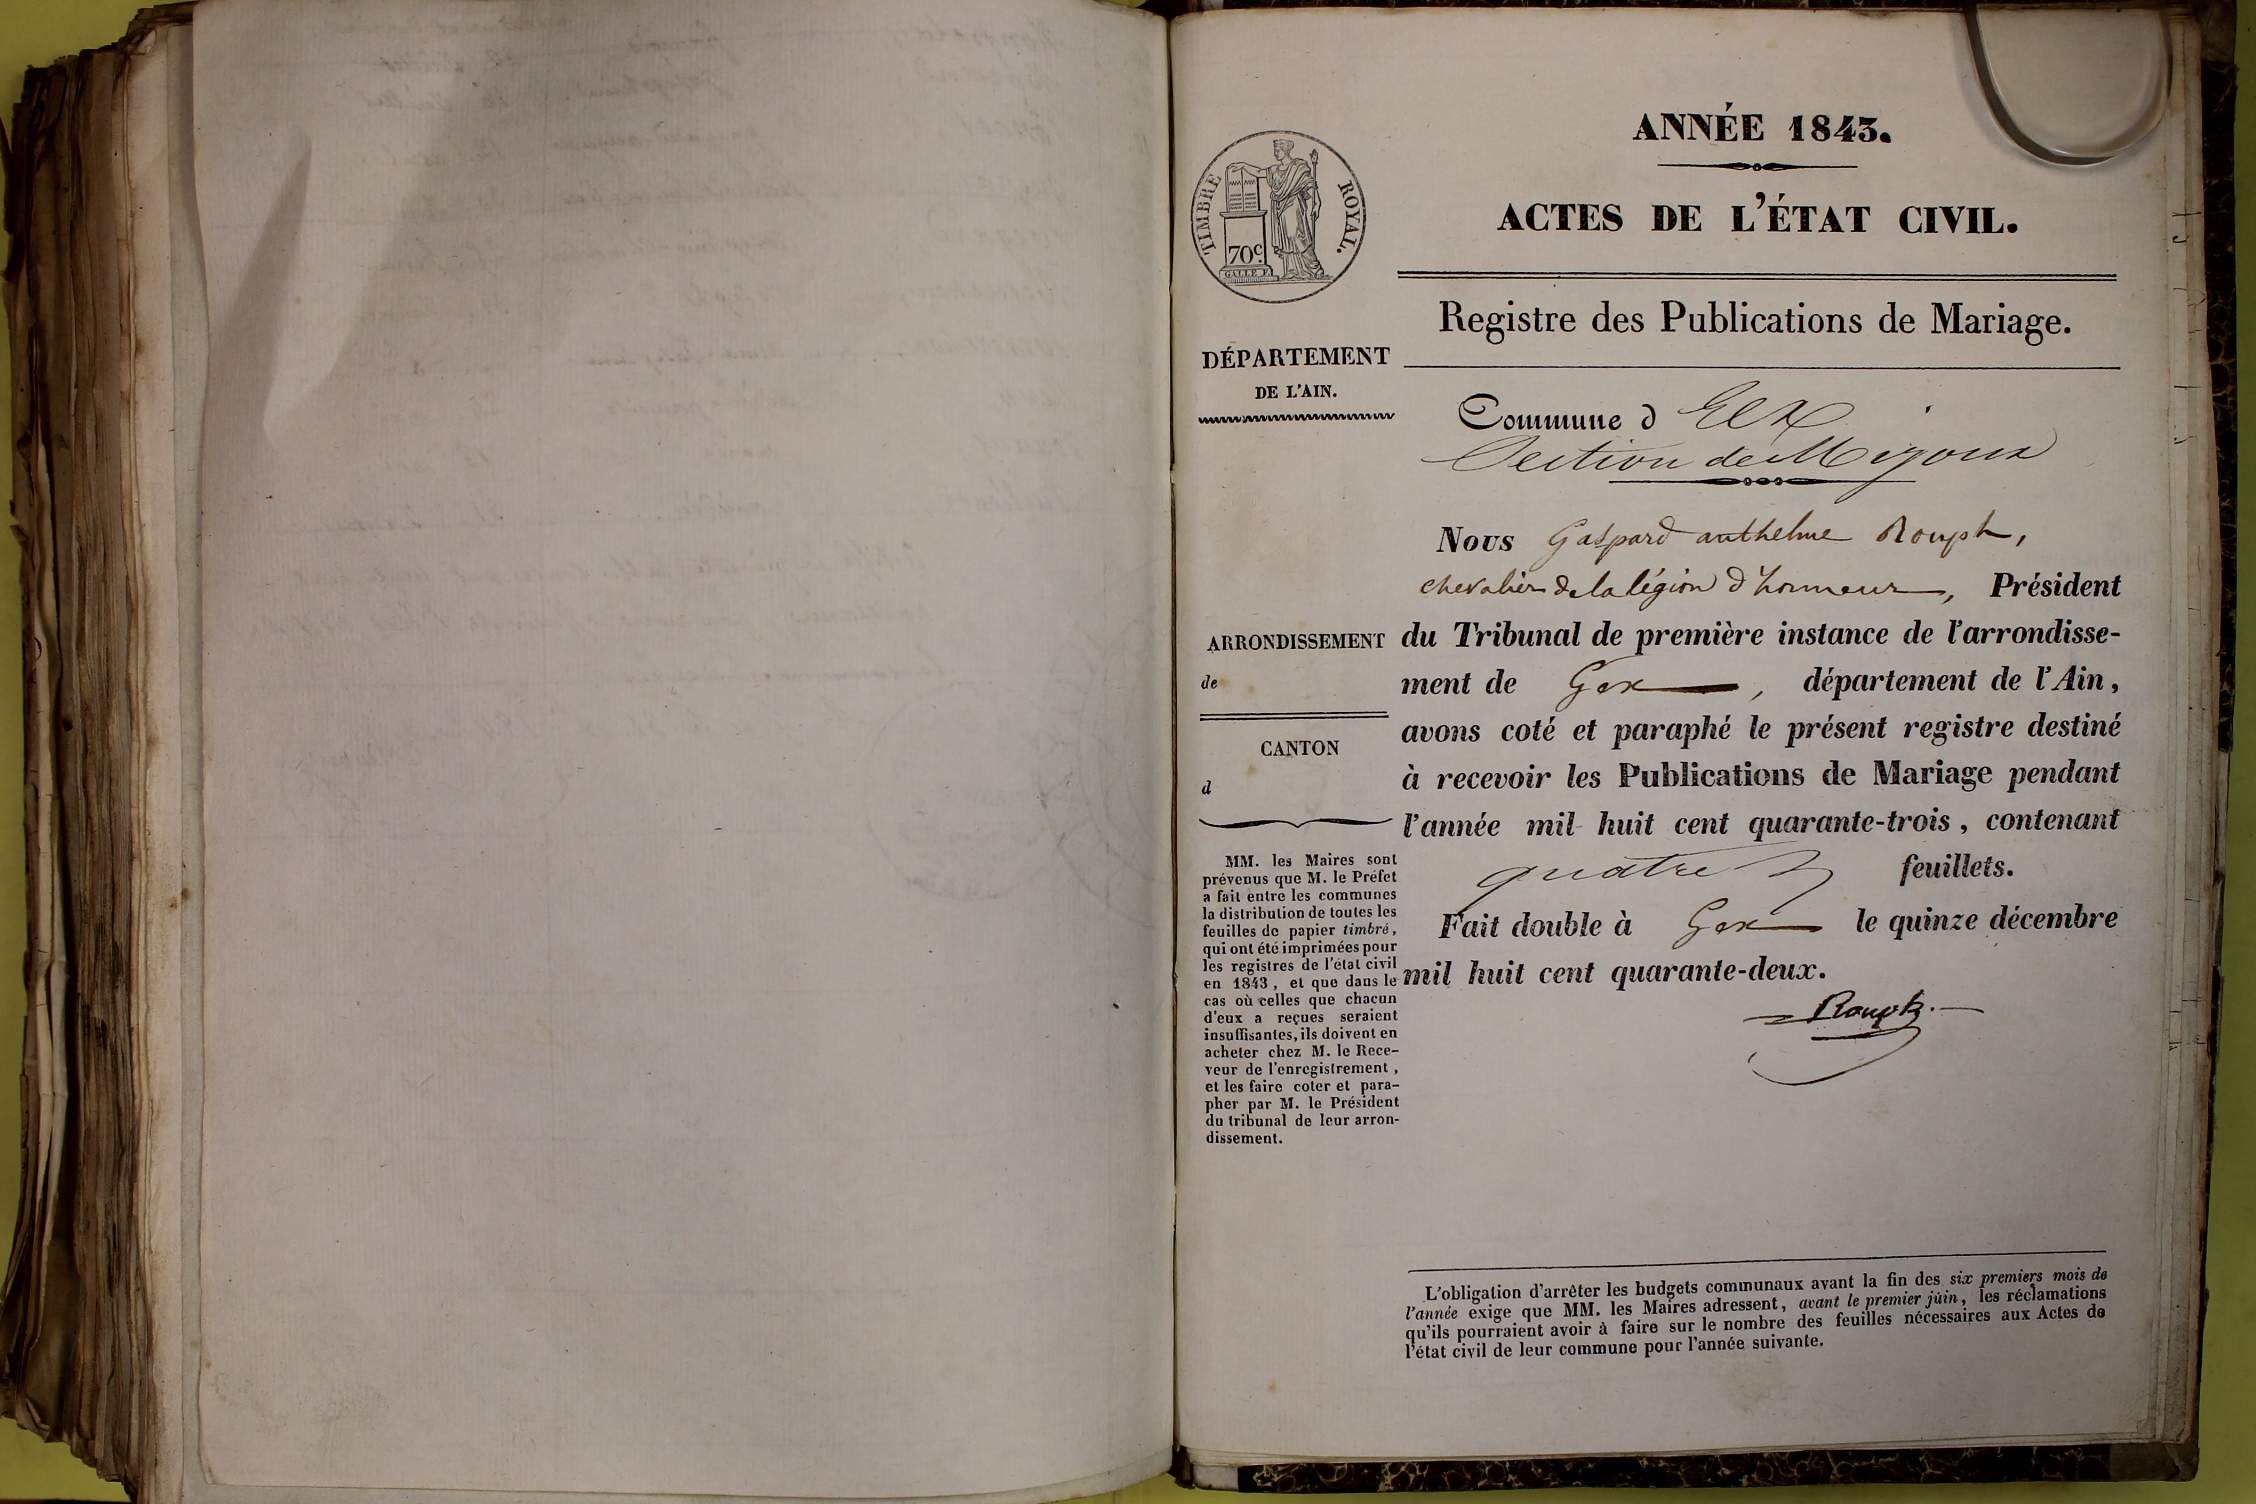 ANNÉE 1843.
ACTES DE L'ÉTAT CIVIL.
Registre des Publications de Mariage.
TIMBRE ROYAL.
70c.
GALLE F.
DÉPARTEMENT
DE L'AIN.
Commune d Gex
Section de Mijoux
Nous Gaspard anthelme Rouph,
chevalier de la légion d'honneur, Président
du Tribunal de première instance de l'arrondisse-
ment de Gex, département de l'Ain,
avons coté et paraphé le présent registre destiné
à recevoir les Publications de Mariage pendant
l'année mil huit cent quarante-trois, contenant
quatre feuillets.
Fait double à Gex le quinze décembre
mil huit cent quarante-deux.
Rouph.
ARRONDISSEMENT
de
CANTON
d
MM. les Maires sont
prévenus que M. le Préfet
a fait entre les communes
la distribution de toutes les
feuilles de papier timbré,
qui ont été imprimées pour
les registres de l'état civil
en 1843, et que dans le
cas où celles que chacun
d'eux a reçues seraient
insuffisantes, ils doivent en
acheter chez M. le Rece-
veur de l'enregistrement,
et les faire coter et para-
pher par M. le Président
du tribunal de leur arron-
dissement.
L'obligation d'arrêter les budgets communaux avant la fin des six premiers mois de
l'année exige que MM. les Maires adressent, avant le premier juin, les réclamations
qu'ils pourraient avoir à faire sur le nombre des feuilles nécessaires aux Actes de
l'état civil de leur commune pour l'année suivante.